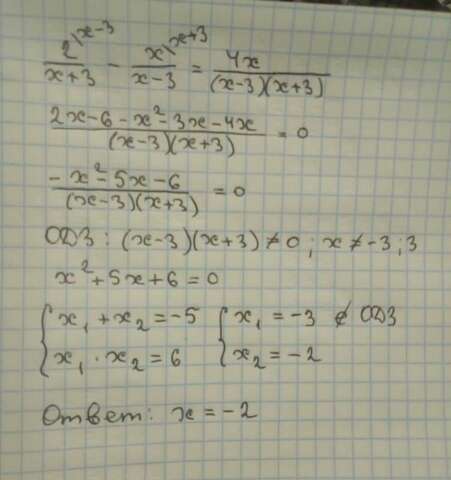 2^{\x-3}/(x+3) - x^{\x+3}/(x-3) = 4x/((x-3)(x+3))
(2x-6-x²-3x-4x)/((x-3)(x+3)) = 0
(-x²-5x-6)/((x-3)(x+3)) = 0
ОДЗ: (x-3)(x+3) ≠ 0; x ≠ -3; 3
x²+5x+6=0
{x₁ + x₂ = -5 {x₁ = -3 ∉ ОДЗ
{x₁ · x₂ = 6 {x₂ = -2
Ответ: x = -2